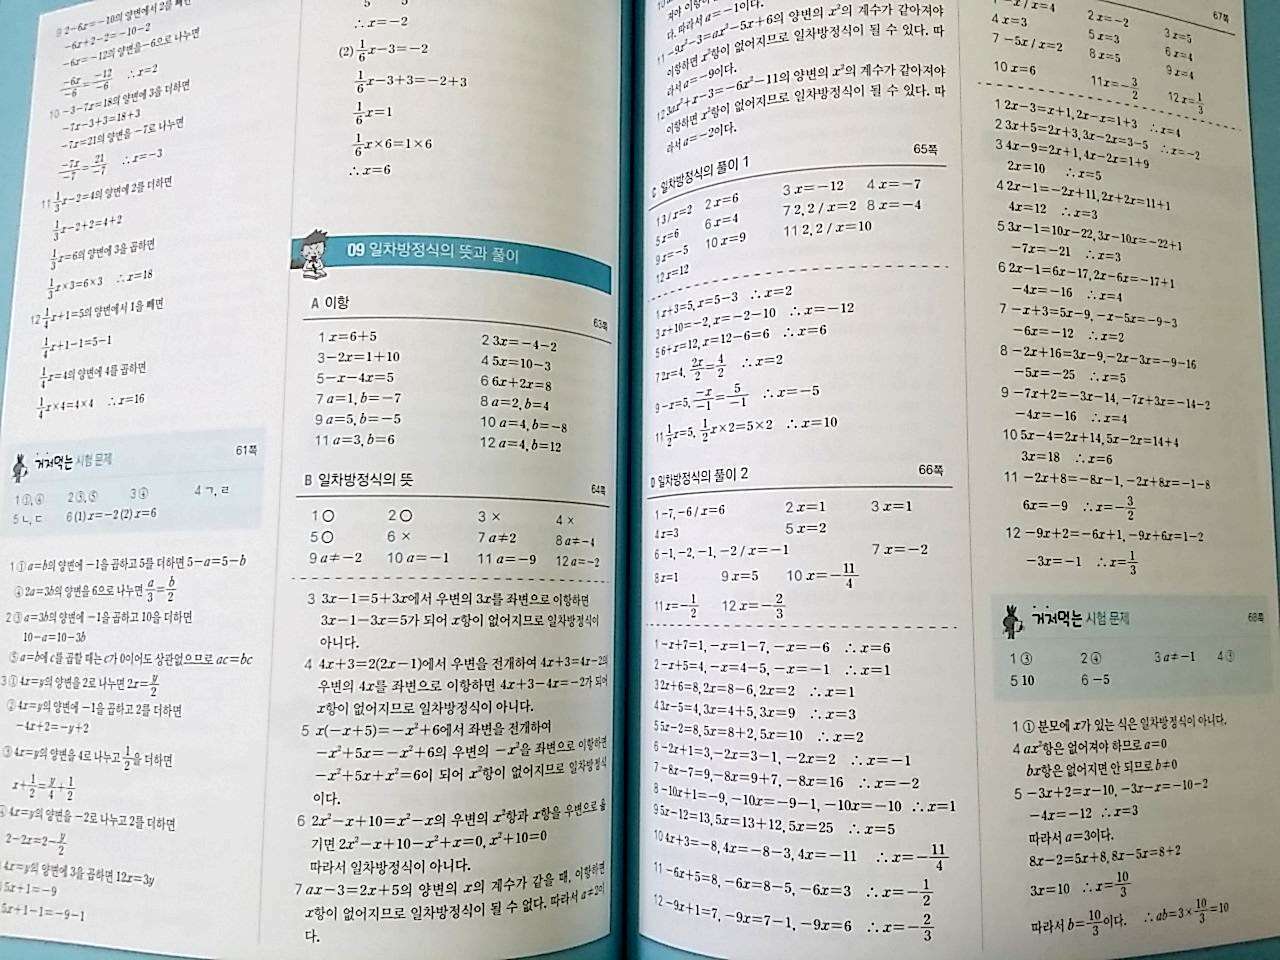 9 2-6x=-10의 양변에서 2를 빼면
-6x+2-2=-10-2
-6x=-12의 양변을 -6으로 나누면
-6x/-6=-12/-6 ∴x=2
10 -3-7x=18의 양변에 3을 더하면
-7x-3+3=18+3
-7x=21의 양변을 -7로 나누면
-7x/-7=21/-7 ∴x=-3
11 1/3x-2=4의 양변에 2를 더하면
1/3x-2+2=4+2
1/3x=6의 양변에 3을 곱하면
1/3x×3=6×3 ∴x=18
12 1/4x+1=5의 양변에서 1을 빼면
1/4x+1-1=5-1
1/4x=4의 양변에 4를 곱하면
1/4x×4=4×4 ∴x=16
거저먹는 시험 문제 61쪽
4 ㄱ, ㄹ
5 ㄴ, ㄷ 6 (1) x=-2 (2) x=6
1 ① a=b의 양변에 -1을 곱하고 5를 더하면 5-a=5-b
④ 2a=3b의 양변을 6으로 나누면 a/3=b/2
2 ③ a=3b의 양변에 -1을 곱하고 10을 더하면
10-a=10-3b
⑤ a=b에 c를 곱할 때는 c가 0이어도 상관없으므로 ac=bc
3 ① 4x=y의 양변을 2로 나누면 2x=y/2
② 4x=y의 양변에 -1을 곱하고 2를 더하면
-4x+2=-y+2
③ 4x=y의 양변을 4로 나누고 1/2을 더하면
x+1/2=y/4+1/2
④ 4x=y의 양변을 -2로 나누고 2를 더하면
2-2x=2-y/2
4x=y의 양변에 3을 곱하면 12x=3y
5x+1=-9
5x+1-1=-9-1
∴x=-2
(2) 1/6x-3=-2
1/6x-3+3=-2+3
1/6x=1
1/6x×6=1×6
∴x=6
09 일차방정식의 뜻과 풀이
A 이항 63쪽
1 x=6+5 2 3x=-4-2
3 -2x=1+10 4 5x=10-3
5 -x-4x=5 6 6x+2x=8
7 a=1, b=-7 8 a=2, b=4
9 a=5, b=-5 10 a=4, b=-8
11 a=3, b=6 12 a=4, b=12
B 일차방정식의 뜻 64쪽
1 ○ 2 ○ 3 × 4 ×
5 ○ 6 × 7 a≠2 8 a≠-4
9 a≠-2 10 a=-1 11 a=-9 12 a=-2
3 3x-1=5+3x에서 우변의 3x를 좌변으로 이항하면
3x-1-3x=5가 되어 x항이 없어지므로 일차방정식이
아니다.
4 4x+3=2(2x-1)에서 우변을 전개하여 4x+3=4x-2의
우변의 4x를 좌변으로 이항하면 4x+3-4x=-2가 되어
x항이 없어지므로 일차방정식이 아니다.
5 x(-x+5)=-x²+6에서 좌변을 전개하여
-x²+5x=-x²+6의 우변의 -x²을 좌변으로 이항하면
-x²+5x+x²=6이 되어 x²항이 없어지므로 일차방정식
이다.
6 2x²-x+10=x²-x의 우변의 x²항과 x항을 우변으로 옮
기면 2x²-x+10-x²+x=0, x²+10=0
따라서 일차방정식이 아니다.
7 ax-3=2x+5의 양변의 x의 계수가 같을 때, 이항하면
x항이 없어지므로 일차방정식이 될 수 없다. 따라서 a≠2이
다.
다. 따라서 a=-1이다.
11 -9x²-3=ax²-5x+6의 양변의 x²의 계수가 같아져야
이항하면 x²항이 없어지므로 일차방정식이 될 수 있다. 따
라서 a=-9이다.
12 3ax²+x-3=-6x²-11의 양변의 x²의 계수가 같아져야
이항하면 x²항이 없어지므로 일차방정식이 될 수 있다. 따
라서 a=-2이다.
C 일차방정식의 풀이 1 65쪽
1 3 / x=2 2 x=6 3 x=-12 4 x=-7
5 x=6 6 x=4 7 2, 2 / x=2 8 x=-4
9 x=-5 10 x=9 11 2, 2 / x=10
12 x=12
1 x+3=5, x=5-3 ∴x=2
3 x+10=-2, x=-2-10 ∴x=-12
5 6+x=12, x=12-6=6 ∴x=6
7 2x=4, 2x/2=4/2 ∴x=2
9 -x=5, -x/-1=5/-1 ∴x=-5
11 1/2x=5, 1/2x×2=5×2 ∴x=10
D 일차방정식의 풀이 2 66쪽
1 -7, -6 / x=6 2 x=1 3 x=1
4 x=3 5 x=2
6 -1, -2, -1, -2 / x=-1 7 x=-2
8 x=1 9 x=5 10 x=-11/4
11 x=-1/2 12 x=-2/3
1 -x+7=1, -x=1-7, -x=-6 ∴x=6
2 -x+5=4, -x=4-5, -x=-1 ∴x=1
3 2x+6=8, 2x=8-6, 2x=2 ∴x=1
4 3x-5=4, 3x=4+5, 3x=9 ∴x=3
5 5x-2=8, 5x=8+2, 5x=10 ∴x=2
6 -2x+1=3, -2x=3-1, -2x=2 ∴x=-1
7 -8x-7=9, -8x=9+7, -8x=16 ∴x=-2
8 -10x+1=-9, -10x=-9-1, -10x=-10 ∴x=1
9 5x-12=13, 5x=13+12, 5x=25 ∴x=5
10 4x+3=-8, 4x=-8-3, 4x=-11 ∴x=-11/4
11 -6x+5=8, -6x=8-5, -6x=3 ∴x=-1/2
12 -9x+1=7, -9x=7-1, -9x=6 ∴x=-2/3
67쪽
1 -x / x=4 2 x=-2 3 x=5
4 x=3 5 x=3 6 x=4
7 -5x / x=2 8 x=5 9 x=4
10 x=6 11 x=-3/2 12 x=1/3
1 2x-3=x+1, 2x-x=1+3 ∴x=4
2 3x+5=2x+3, 3x-2x=3-5 ∴x=-2
3 4x-9=2x+1, 4x-2x=1+9
2x=10 ∴x=5
4 2x-1=-2x+11, 2x+2x=11+1
4x=12 ∴x=3
5 3x-1=10x-22, 3x-10x=-22+1
-7x=-21 ∴x=3
6 2x-1=6x-17, 2x-6x=-17+1
-4x=-16 ∴x=4
7 -x+3=5x-9, -x-5x=-9-3
-6x=-12 ∴x=2
8 -2x+16=3x-9, -2x-3x=-9-16
-5x=-25 ∴x=5
9 -7x+2=-3x-14, -7x+3x=-14-2
-4x=-16 ∴x=4
10 5x-4=2x+14, 5x-2x=14+4
3x=18 ∴x=6
11 -2x+8=-8x-1, -2x+8x=-1-8
6x=-9 ∴x=-3/2
12 -9x+2=-6x+1, -9x+6x=1-2
-3x=-1 ∴x=1/3
거저먹는 시험 문제 68쪽
1 ③ 2 ④ 3 a≠-1
5 10 6 -5
1 ① 분모에 x가 있는 식은 일차방정식이 아니다.
4 ax²항은 없어져야 하므로 a=0
bx항은 없어지면 안 되므로 b≠0
5 -3x+2=x-10, -3x-x=-10-2
-4x=-12 ∴x=3
따라서 a=3이다.
8x-2=5x+8, 8x-5x=8+2
3x=10 ∴x=10/3
따라서 b=10/3이다. ∴ab=3×10/3=10